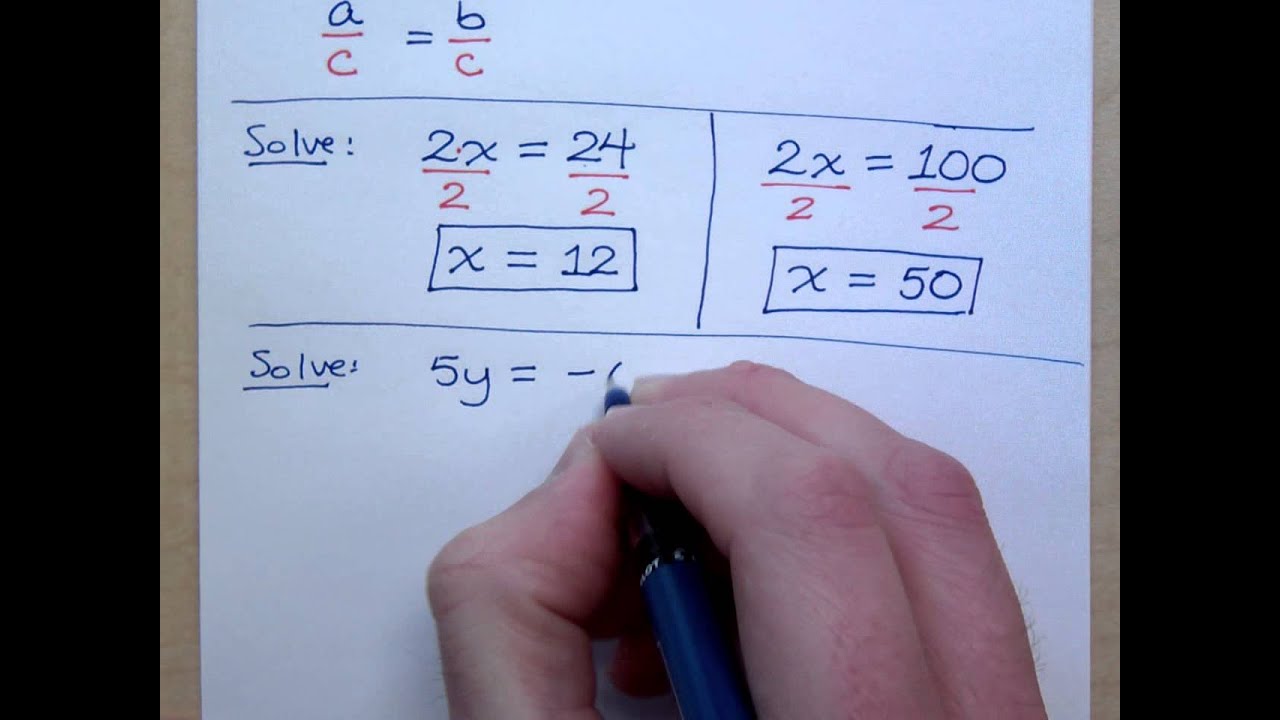 a/c = b/c
Solve: 2·x = 24
2 2
x = 12
2x = 100
2 2
x = 50
Solve: 5y = -